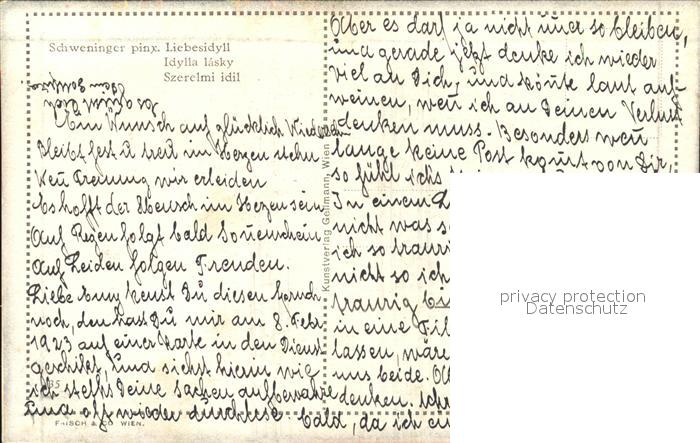 Schweninger pinx. Liebesidyll
Idylla lásky
Szerelmi idil
Ein Wunsch auf glücklich Wiedersehn
Bleibt fest u treu im Herzen stehn
Wen Trennung wir erleiden
Es hofft der Mensch im Herzen sein
Auf Regen folgt bald Sonnenschein
Auf Leiden folgen Freuden.
Liebe kenst Du diesen Spruch
noch, den hast Du mir am 8. Febr
1923 auf einer Karte in den Dienst
geschikt, und siehst hierin wie
ich stehts Deine Sachen aufbewahre
und oft wieder durchlese.
FRISCH & CO WIEN.
Kunstverlag Gellmann, Wien
Aber es darf ja nicht imer so bleiben,
und gerade jetzt denke ich wieder
viel an Dich, und könte laut auf
weinen, wen ich an Deinen Verlust
denken muss. Besonders wen
lange keine Post komt von Dir,
so fühl ichs
In einem
nicht was
ich so trauri
nicht so ich
traurig bis
in eine
lassen, wäre
uns beide.
denken.
bald, da ich
privacy protection
Datenschutz